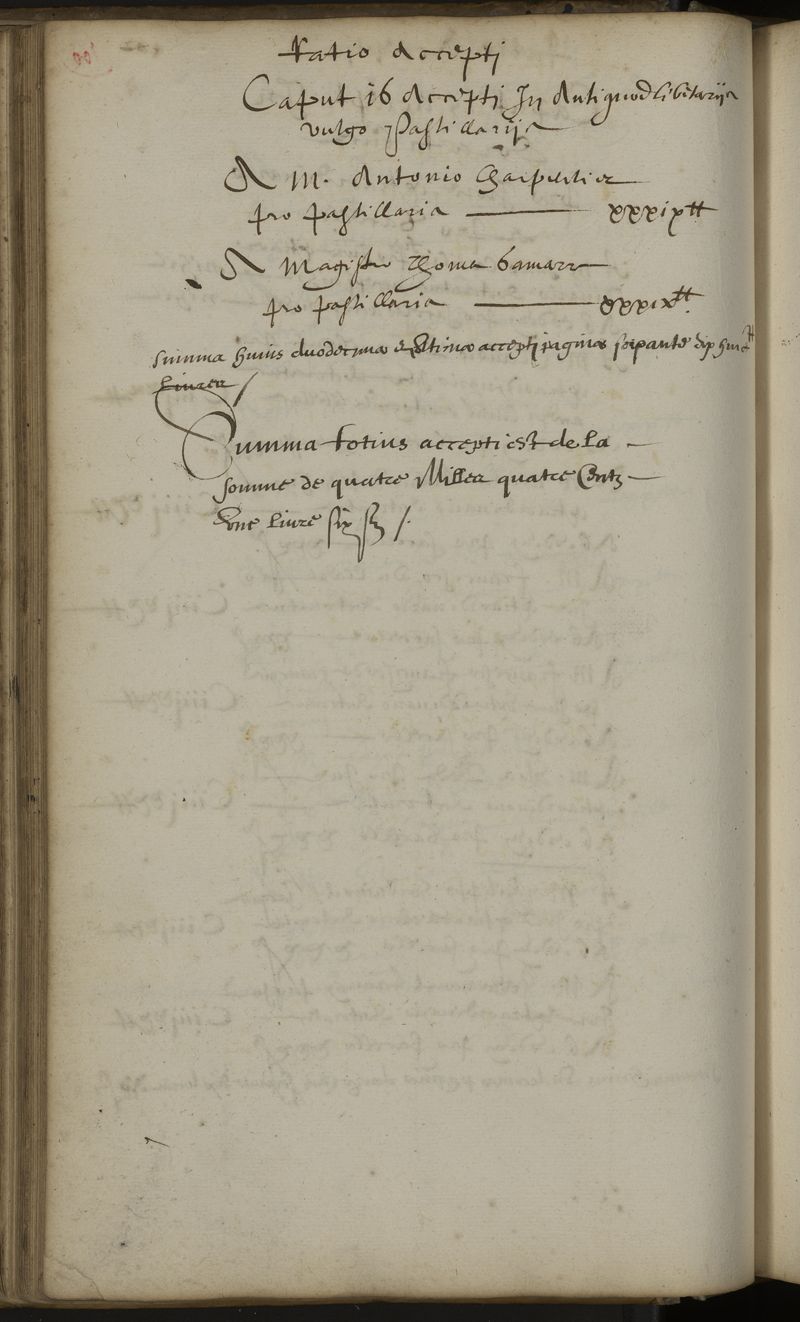 Ratio Accepti
Caput 16 Accepti In Antiquodlibetarijs
vulgo Pastillarijs
A M. Antonio Charpentier
pro pastillaria xxxix tt
A Magistro Thoma Gamare
pro pastillaria xxxix tt.
summa huius duodecimae et ultimae accepti paginae soixante dix huict tt
Livres /
Summa totius accepti est de la
somme de quatre Milles quatre Centz
une livre six s /.